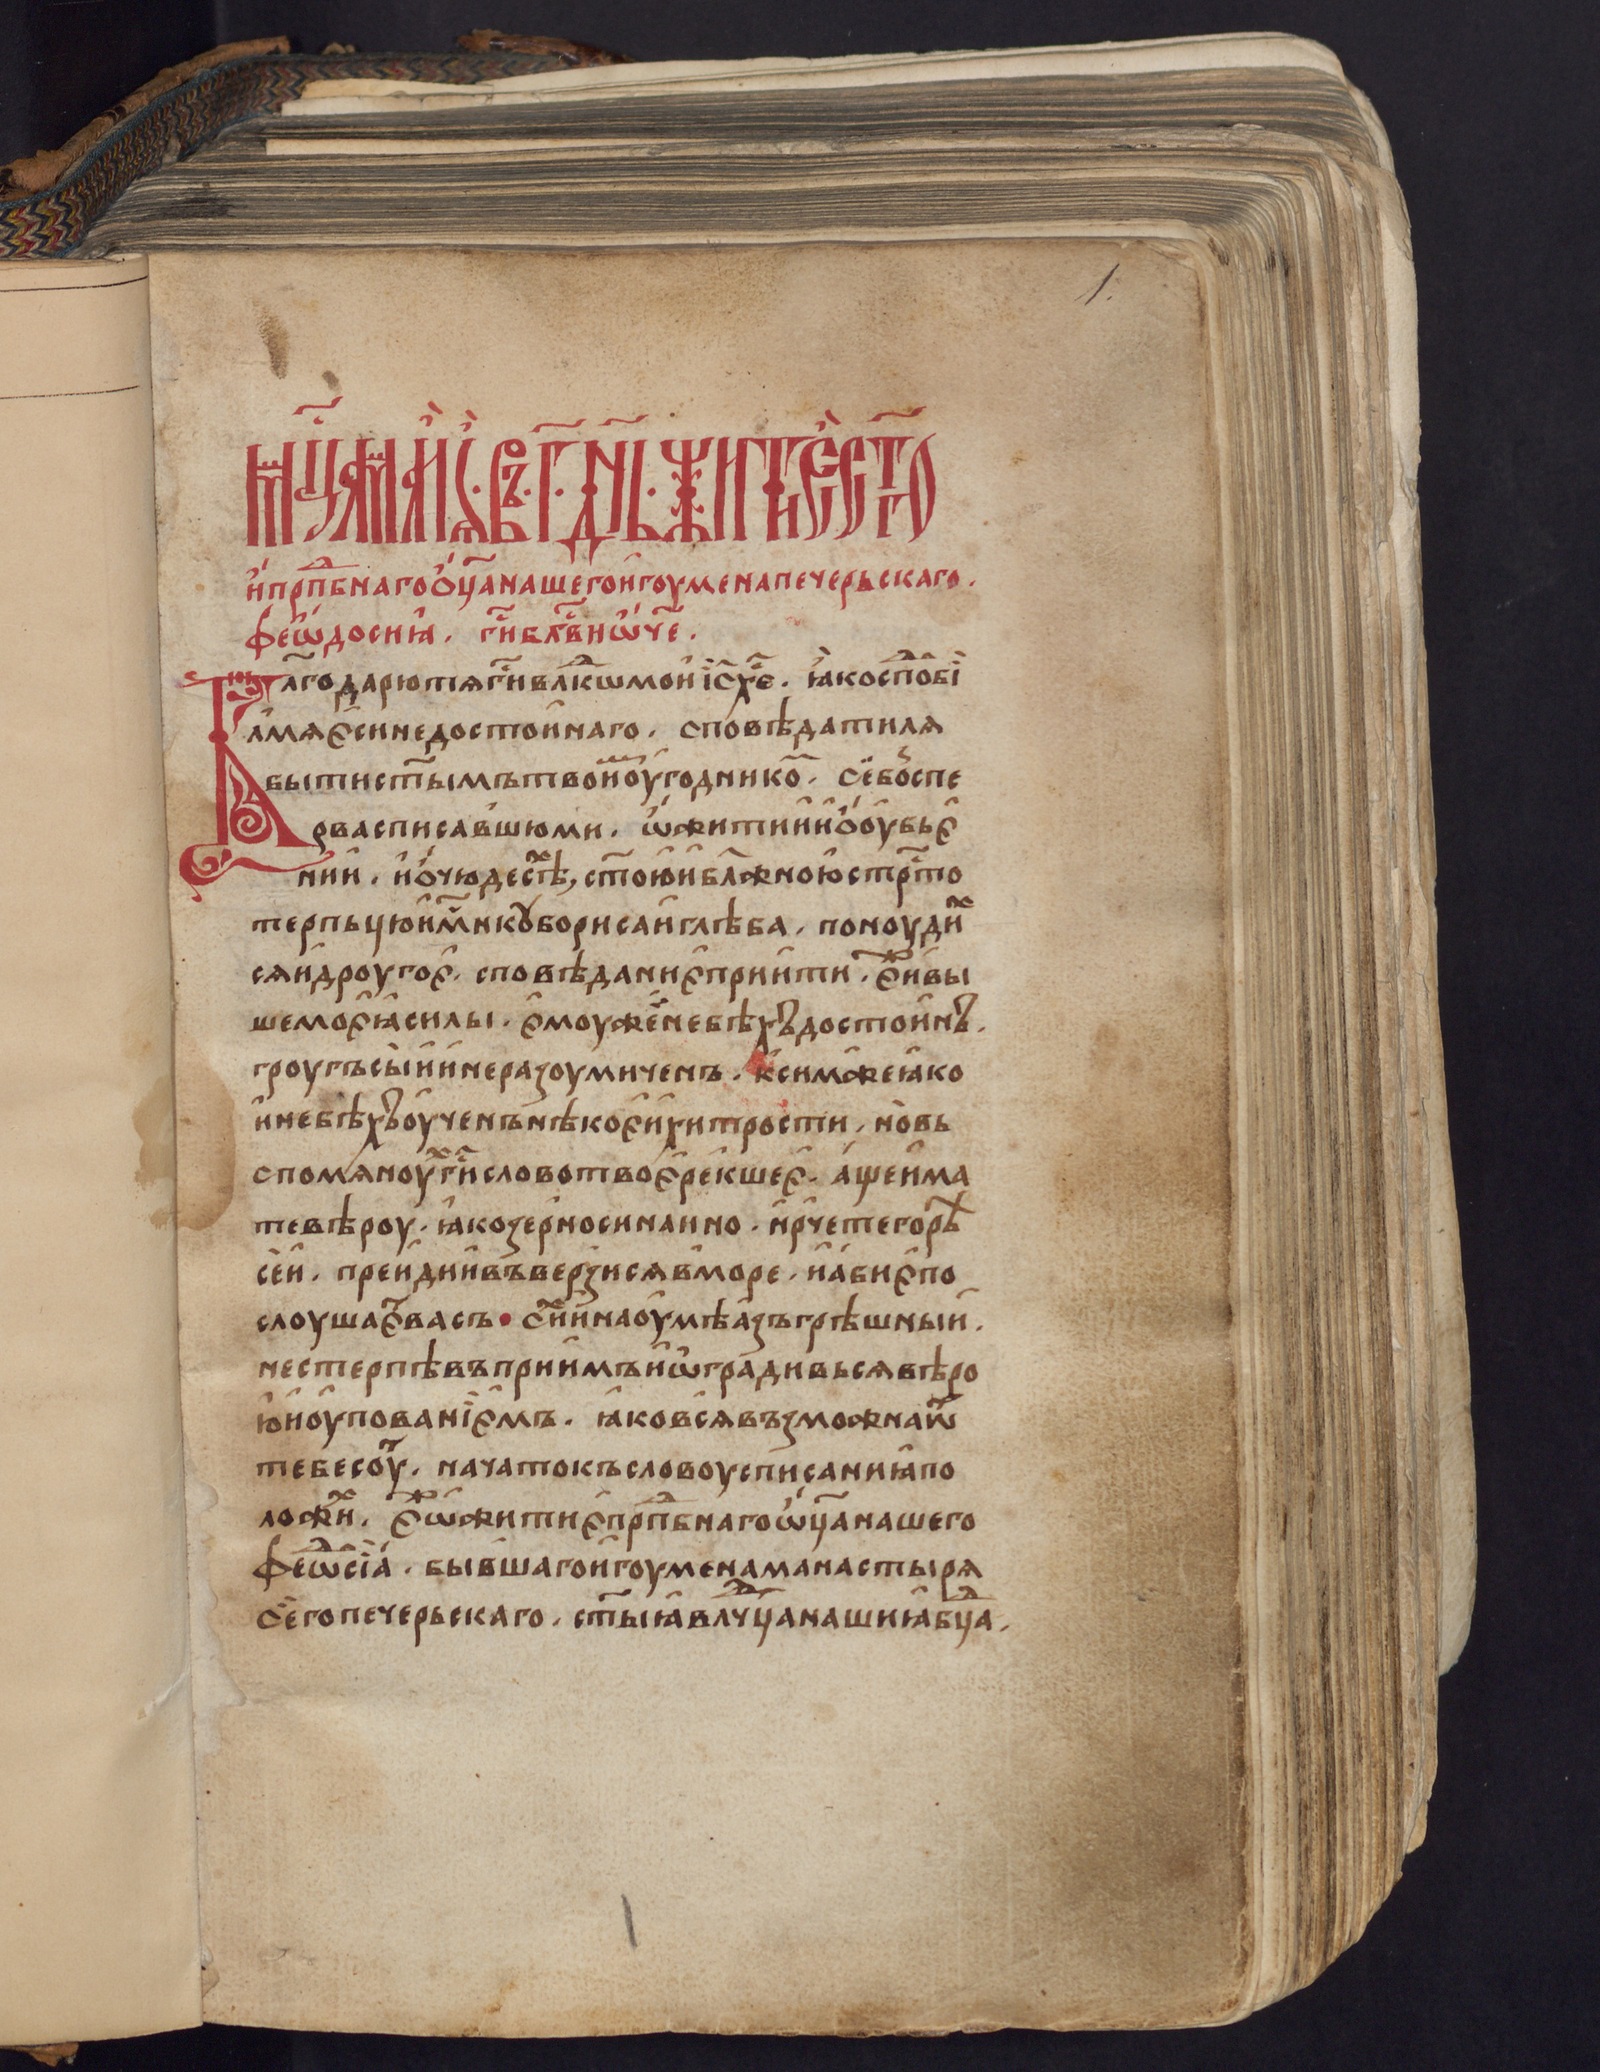 1.
мц҃а маїа въ г҃ дн҃ь житїе ст҃го
и҆ прпⷣбнаго ѻ҆ц҃а нашего и҆гоумена печерьскаго.
феѡ҆досиꙗ. гⷭ҇и блгⷭ҇ви ѡ҆ч҃е.
Бл҃годарю тѧ гⷭ҇и влⷣкѡ мои і҆с х҃е. ꙗ҆ко спⷣобі
л мѧ є҆си недостоинаго. споведатилѧ
быти ст҃ымъ твои оу҆годнико. се бо спе
рва списавшю ми. ѡ҆ житии и҆ ѻ҆ оу҆бьє
нии. и҆ ѻ҆ чюдесѣⷯ, ст҃ою и҆ блж҃ною стрⷭ҇то
терпьцю и҆ мч҃нкꙋ бориса и҆ глѣба. поноудиⷯ
сѧ и҆ дроугоє. споведаниє приити. є҆ⷤ и҆ вы
ше моєꙗ силы. є҆моуже не бѣхъ достоинъ.
гроугъ сыи и҆ неразоумиченъ. к симже ꙗ҆ко
и҆ не бѣхъ оу҆ченъ нѣкоєи хитрости. но въ
спомѧноуⷯ гⷭ҇и слово твоє рекшеє. а҆ще има
те вѣроу. ꙗ҆ко зерно синапно. и҆ рчете горѣ
сеи. преиди и҆ въверзисѧ в море. и҆ а҆биє по
слоушаєⷮ васъ • сиⷯ и҆ на оу҆мѣ а҆зъ грѣшныи.
нестерпѣвъ приимъ и҆ ѡ҆градивьсѧ вѣро
ю и҆ оу҆пованіємъ. ꙗ҆ко всѧ възможна ѿ
тебе соуⷮ. начатокъ словоу списаниꙗ по
ложиⷯ. є҆ⷤ ѡ҆ житиє прпⷣбнаго ѡ҆ц҃а нашего
феѡⷣсіа. бывшаго и҆гоумена манастырѧ
сего печерьскаго. ст҃ыꙗ влⷣчц҃а нашиꙗ бц҃а.